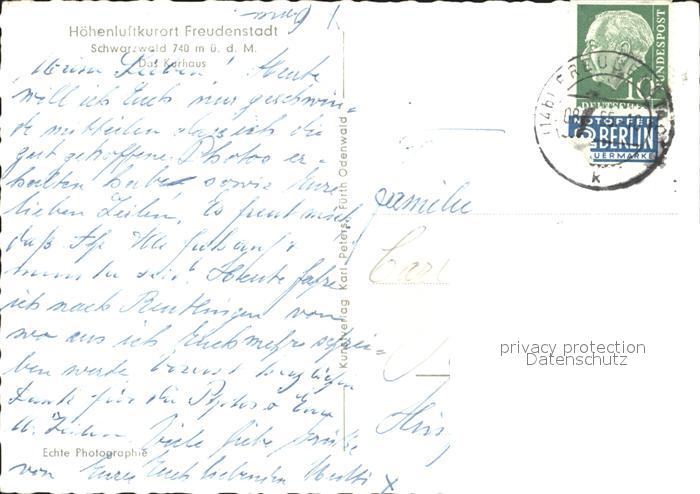 Höhenluftkurort Freudenstadt
Schwarzwald 740 m ü. d. M.
Das Kurhaus
Meine Lieben! Heute
will ich Euch nur geschwin-
de mitteilen dass ich die
gut getroffene Photos er-
halten habe sowie Eure
lieben Zeilen. Es freut mich
daß Ihr Alle gesund &
munter seid! Heute fahre
ich nach Reutlingen von
wo aus ich Euch mehr schrei-
ben werde
Dank für die Photos & Eure
lb. Zeilen. Viele liebe Grüße
von Eurer Euch liebenden Mutti x
Echte Photographie
Kunstverlag Karl Peters, Fürth Odenwald
Familie
10
BUNDESPOST
NOTOPFER
2 BERLIN
STEUERMARKE
k
privacy protection
Datenschutz